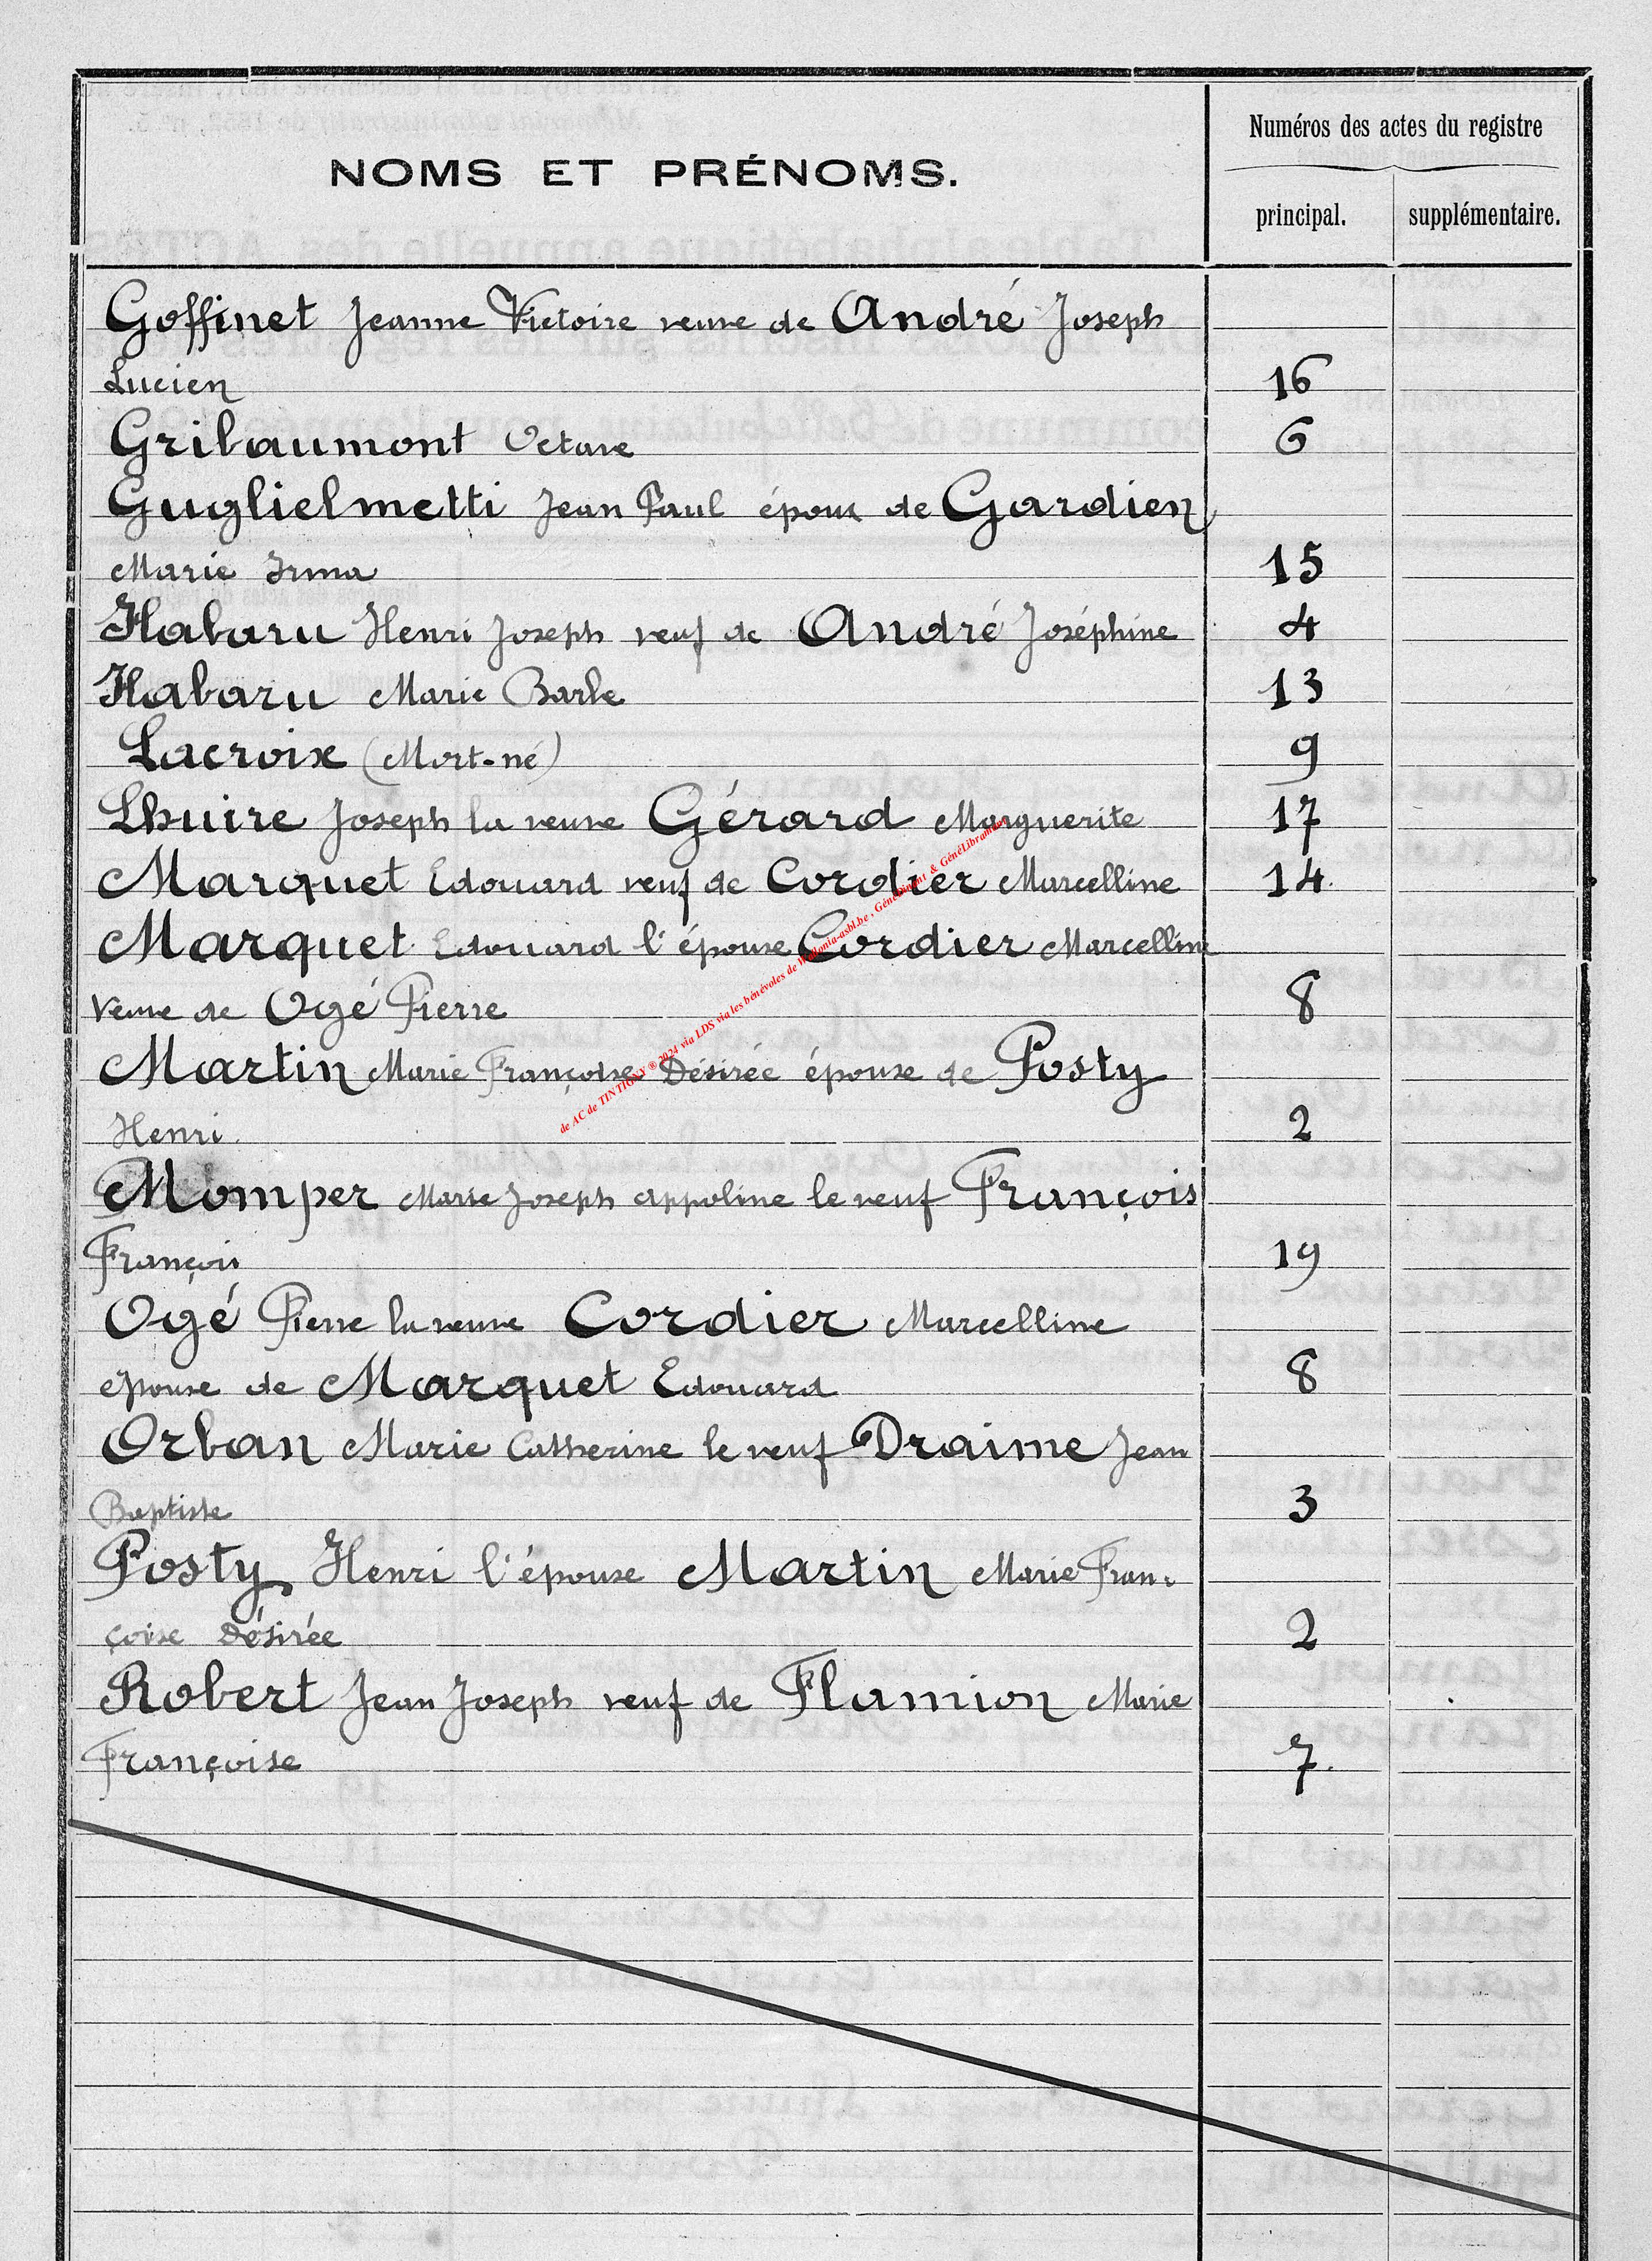 NOMS ET PRÉNOMS.
Numéros des actes du registre
principal. supplémentaire.
Goffinet Jeanne Victoire veuve de André Joseph
Lucien 16
Gribaumont Octave 6
Guglielmetti Jean Paul époux de Gardien
Marie Irma 15
Habaru Henri Joseph veuf de André Joséphine 4
Habaru Marie Barbe 13
Lacroix (Mort-né) 9
Lhuire Joseph la veuve Gérard Marguerite 17
Marquet Edouard veuf de Cordier Marcelline 14
Marquet Edouard l'épouse Cordier Marcelline
veuve de Ogé Pierre 8
Martin Marie Françoise Désirée épouse de Posty
Henri 2
Momper Marie Joseph Appoline le veuf François
François 19
Ogé Pierre la veuve Cordier Marcelline
épouse de Marquet Edouard 8
Orban Marie Catherine le veuf Draime Jean
Baptiste 3
Posty Henri l'épouse Martin Marie Fran-
çoise Désirée 2
Robert Jean Joseph veuf de Flamion Marie
Françoise 7.
de AC de TINTIGNY ® 2024 via LDS via les bénévoles de Wallonia-asbl.be, GénéDinant & GénéLibramont